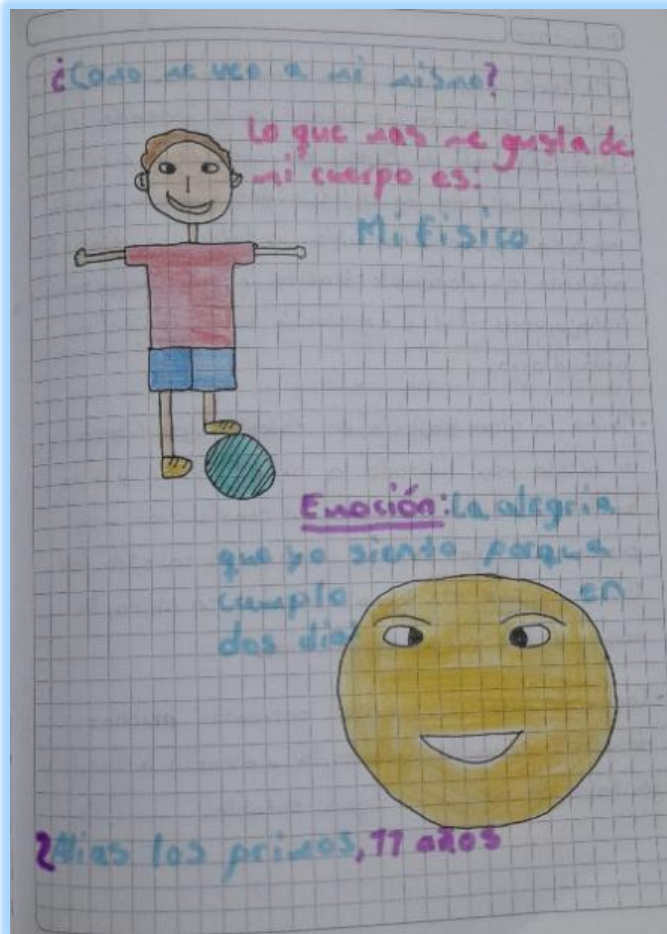 ¿Como me veo a mi mismo?
Lo que mas me gusta de
mi cuerpo es:
Mi fisico
Emoción: La alegria
que yo siento porque
cumplo en
dos dias
Alias los primos, 11 años